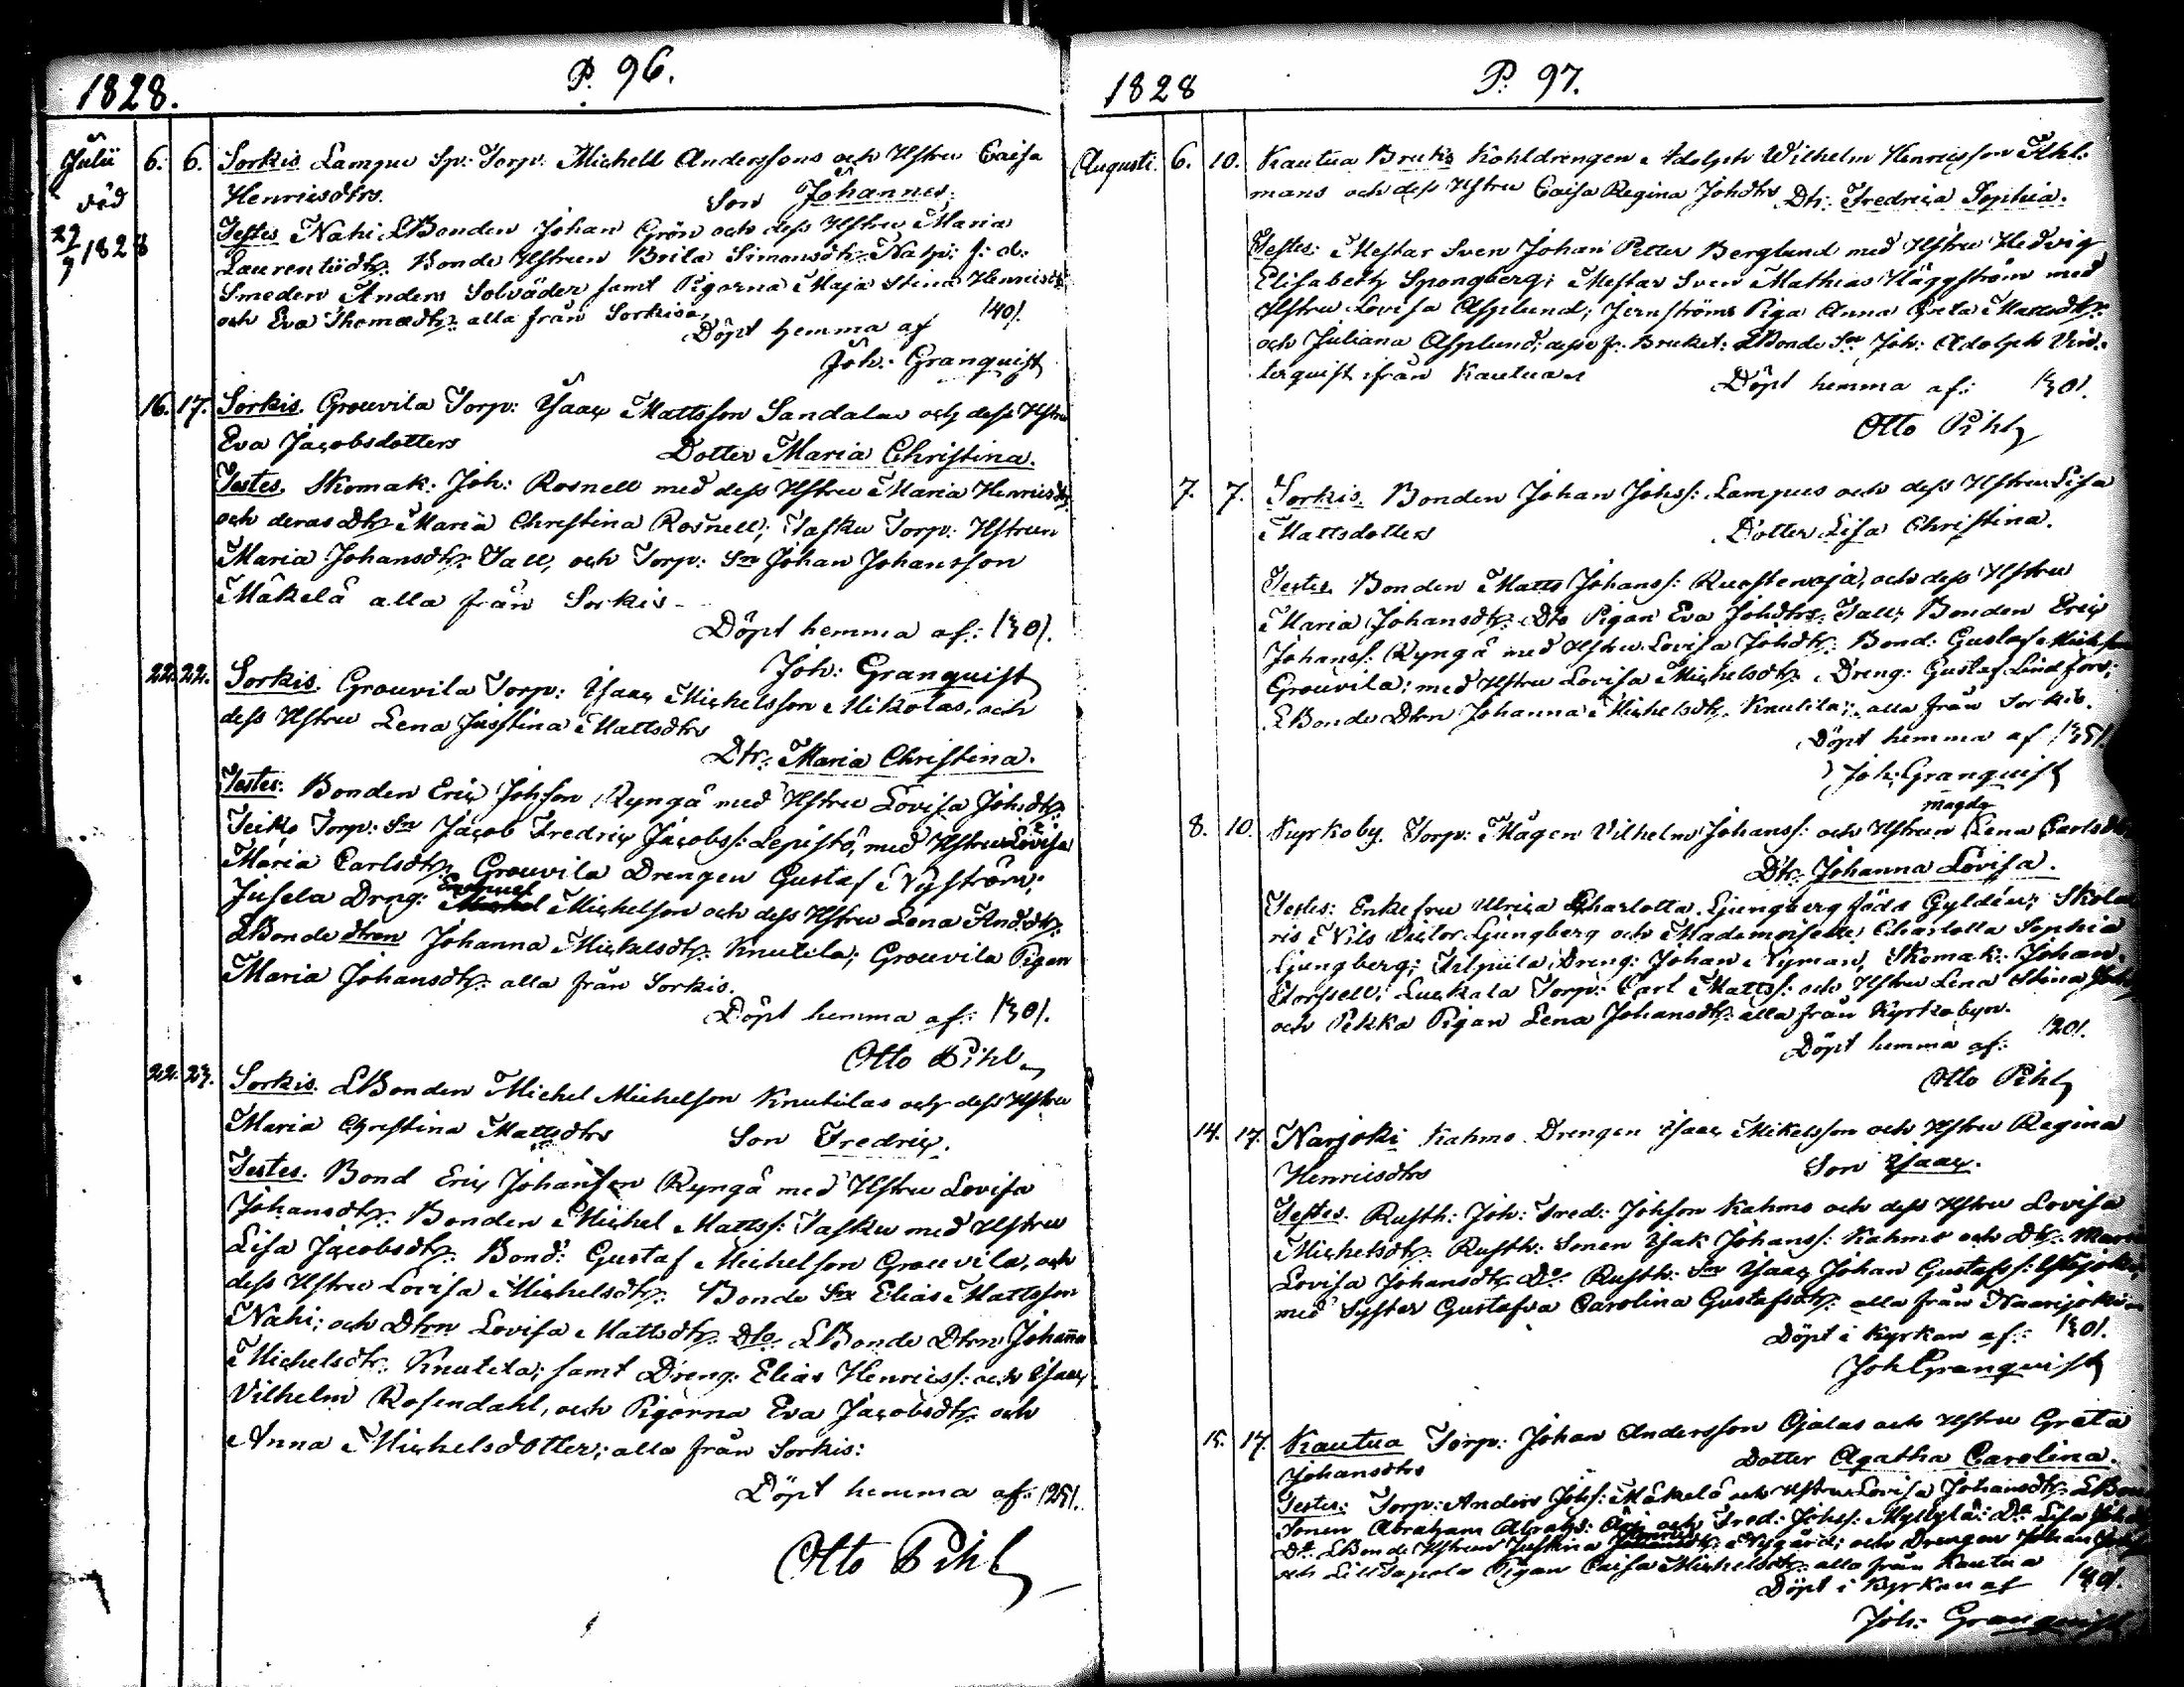 1828.
P. 96.
Julii 6. 6. Sorkis Lampu Sp: Torp: Michell Anderssons och Hstru Caisa
död Henricsdtrs. Son Johannes.
27/7 1828
Testes Nahi LBonden Johan Grön och dess Hstru Maria
Laurentiidtr. Bonde Hstrun Brita Simonsdtr.
Smeden Anders Solväder samt Pigorna Maja Stina Henricsdtr
och Eva Thomædtr. alla från Sorkis. 140/.
Döpt hemma af
Joh: Granquist
16. 17. Sorkis. Grouvila Torp: Isaac Mattsson Sandalas och dess Hstru
Eva Jacobsdotters Dotter Maria Christina.
Testes. Skomak: Joh: Rosnell med dess Hstru Maria Henricsdtr.
och deras Dtr Maria Christina Rosnell; Tasku Torp: Hstrun
Maria Johansdtr. Tall, och Torp: Sn Johan Johansson
Mäkelä alla från Sorkis.
Döpt hemma af: 130/.
Joh: Granquist
22. 22. Sorkis. Grouvila Torp: Isaac Michelsson Mikolas, och
dess Hstru Lena Justina Mattsdtrs
Dtr. Maria Christina.
Testes: Bonden Eric Johsson Ryngä med Hstru Lovisa Johsdtr.
Teiko Torp: Sn Jacob Fredric Jacobss: Lepistö, med Hstru Lovisa
Maria Carlsdtr. Grouvila Drengen Gustaf Nyström;
Jusela Drng: Emanuel Michelson och dess Hstru Lena And:dtr.
LBonde dtren Johanna Michelsdtr. Knutila; Grouvila Pigan
Maria Johansdtr. alla från Sorkis.
Döpt hemma af: 130/.
Otto Pihl
22. 23. Sorkis. LBonden Michel Michelson Knutilas och dess Hstru
Maria Christina Mattsdtrs Son Fredric.
Testes. Bond Eric Johanson Ryngä med Hstru Lovisa
Johansdtr. Bonden Michel Mattss: Tasku med Hstru
Lisa Jacobsdtr. Bond: Gustaf Michelson Grouvila, och
dess Hstru Lovisa Michelsdtr. Bonde Sn Elias Mattsson
Nahi; och Dtrn Lovisa Mattsdtr. Dto LBonde Dtrn Johanna
Michelsdtr. Knutila; samt Dreng. Elias Henricss: och Isaac
Vilhelm Rosendahl, och Pigorna Eva Jacobsdtr. och
Anna Michelsdotter; alla från Sorkis:
Döpt hemma af: 125/.
Otto Pihl
1828
P. 97.
Augusti. 6. 10. Kautua Bruks Kohldrengen Adolph Wilhelm Henricsson
mans och dess Hstru Caisa Regina Johdtrs Dtr. Fredrica Sophia.
Testes: Mestar Sven Johan Petter Berglund med Hstru Hedvig
Elisabeth Spongberg; Mestar Sven Mathias Häggström med
Hstru Lovisa Asplund; Jernströms Piga Anna Greta Mattsdtr.
och Juliana Asplund; desse fr. Bruket: LBonde Sn Joh: Adolph
quist från Kautua Döpt hemma af: 130/.
Otto Pihl
7. 7. Sorkis. Bonden Johan Johss: Lampus och dess Hstru Lisa
Mattsdotters Dotter Lisa Christina.
Testes. Bonden Matts Johanss: Ruostenoja, och dess Hstru
Maria Johansdtr. Dto Pigan Eva Johdtr. Tall; Bonden Eric
Johanss: Ryngä med Hstru Lovisa Johdtr. Bond: Gustaf Michsson
Grouvila; med Hstru Lovisa Michelsdtr. Dreng: Gustaf Lindfors;
LBonde Dtrn Johanna Michelsdtr. Knutila; alla från Sorkis.
Döpt hemma af 135/.
Joh: Granquist
8. 10. Kyrkoby. Torp: Mågen Vilhelm Johanss: och Hstrun Lena Magda Carlsdtr
Dtr. Johanna Lovisa.
Testes: Enkefru Ulrica Charlotta Ljungberg född Gyldén; Skola
ris Nils Victor Ljungberg och Mademoiselle Charlotta Sophia
Ljungberg; Dreng: Johan Nyman, Skomak: Johan
Torssell; Luckala Torp: Carl Mattss: och Hstru Lena Stina
och Pekka Pigan Lena Johansdtr. alla från Kyrkobyn.
Döpt hemma af: 120/.
Otto Pihl
14. 17. Narjoki Kahmo Drengen Isaac Mikelsson och Hstru Regina
Henricsdtrs Son Isaac.
Testes. Rusth: Joh: Fred: Johson Kahmo och dess Hstru Lovisa
Michelsdtr. Rusth: Sonen Isak Johanss: Kahmo och Dtr. Maria
Lovisa Johansdtr. Do. Rusth: Sn Isaac Johan Gustafss:
med Syster Gustafva Carolina Gustafsdtr. alla från Naarijoki
Döpt i Kyrkan af: 130/.
Joh Granquist
15. 17. Kautua Torp: Johan Andersson Ojalas och Hstru Greta
Johansdtrs Dotter Agatha Carolina.
Testes: Torp: Anders Johs: Mäkelä och Hstru Lovisa Johansdtr. LBon
Sonen Abraham Abrahs: och Fred: Johss: Myllylä: Do Lisa
Dto LBonde Hstrun Justina Henricsdtr. Nygård; och Drengen Johan
och Lill Tapola Pigan Caisa Michelsdtr. alla från Kautua
Döpt i Kyrkan af 140/.
Joh: Granquist